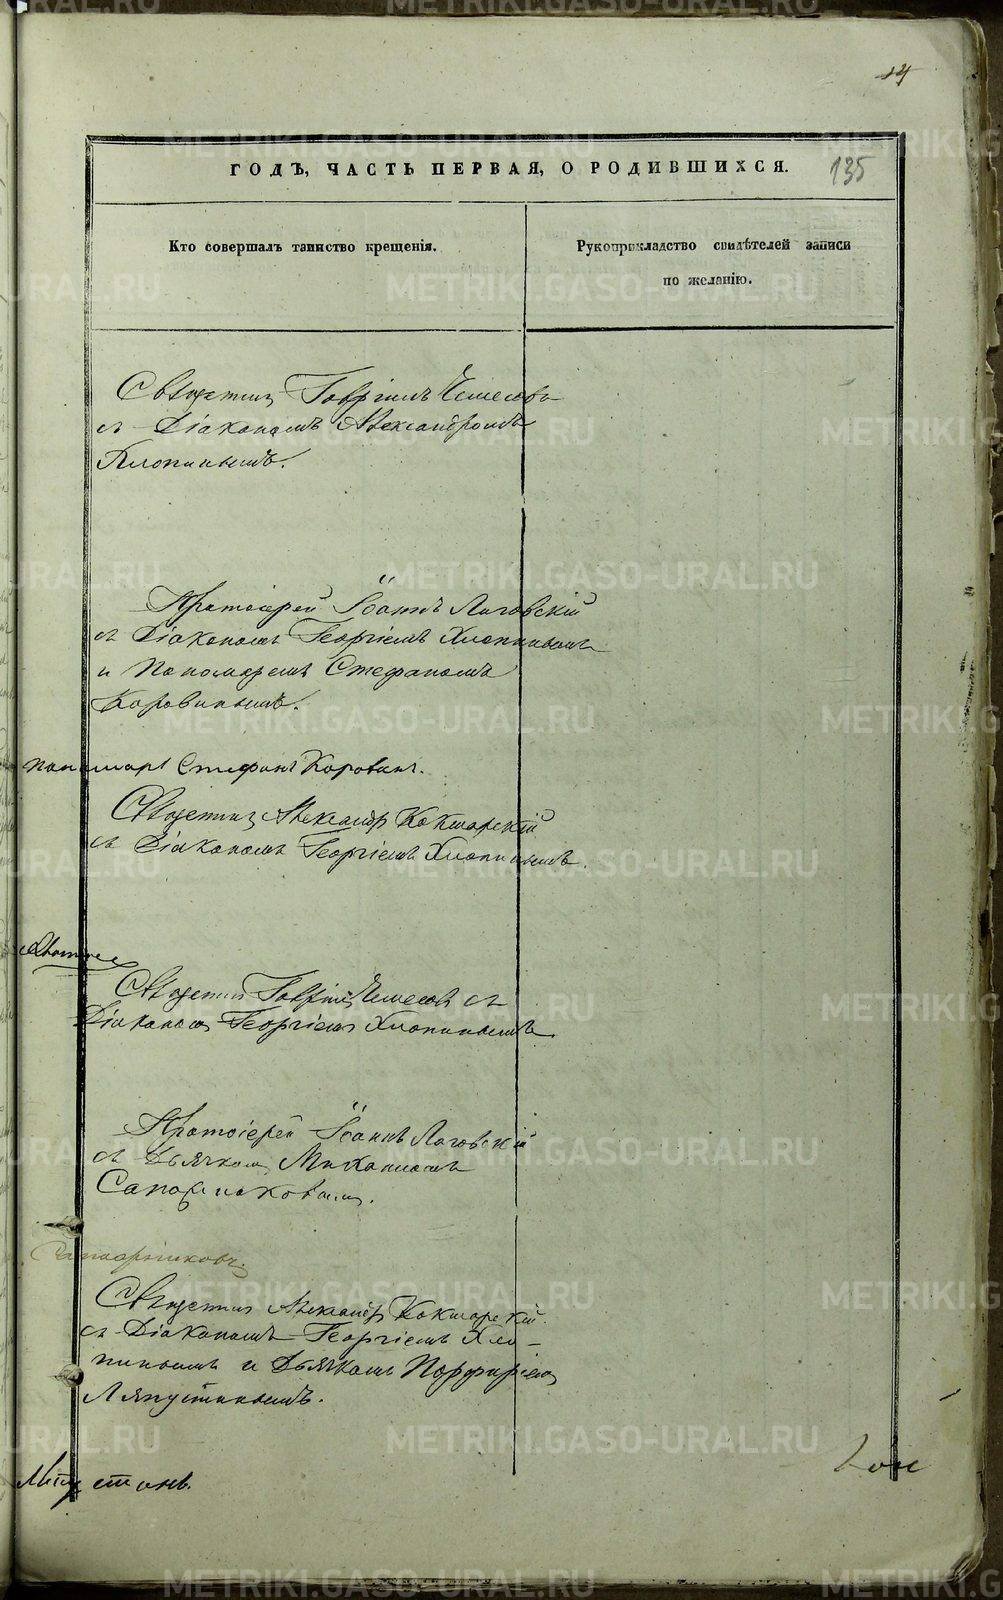 135
ГОДЪ, ЧАСТЬ ПЕРВАЯ, О РОДИВШИХСЯ.
Кто совершалъ таинство крещенія.
Рукоприкладство свидѣтелей записи
по желанію.
Священник Гавріилъ
съ Діакономъ Александромъ
Хлопинымъ.
Протоіерей Іоаннъ Лаговскій
съ Діакономъ Георгіемъ Хлопинымъ
и Пономаремъ Стефаномъ
Коровинымъ.
пономарь Стефанъ Коровинъ.
Священник Александр Кокшарскій
съ Діакономъ Георгіемъ Хлопинымъ.
Священник Гавріил съ
Діаконом Георгіем Хлопинымъ.
Протоіерей Іоаннъ Лаговскій
съ Дьячком Михаиломъ
Сапожниковым.
Священник Александр Кокшарскій
съ Діакономъ Георгіемъ Хло-
пиным и Дьячкомъ Порфиріем
Ляпустинымъ.
METRIKI.GASO-URAL.RU